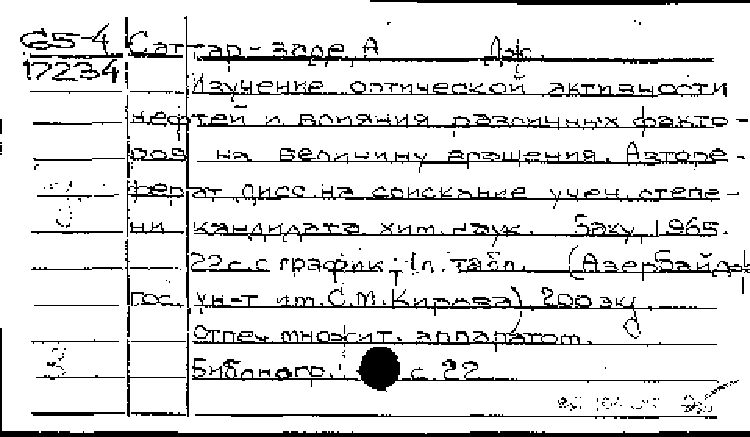 65-4 Саттар-заде, А Дж.
17234
Изучение оптической активности
нефтей и влияния различных факто-
ров на величину вращения. Авторе-
ферат дисс. на соискание учен. степе-
ни кандидата хим. наук. Баку, 1965.
22 с. с график.; 1 л. табл. (Азербайдж.
гос. ун-т им. С.М. Кирова). 200 экз.
Отпеч. множит. аппаратом.
Библиогр. с. 22